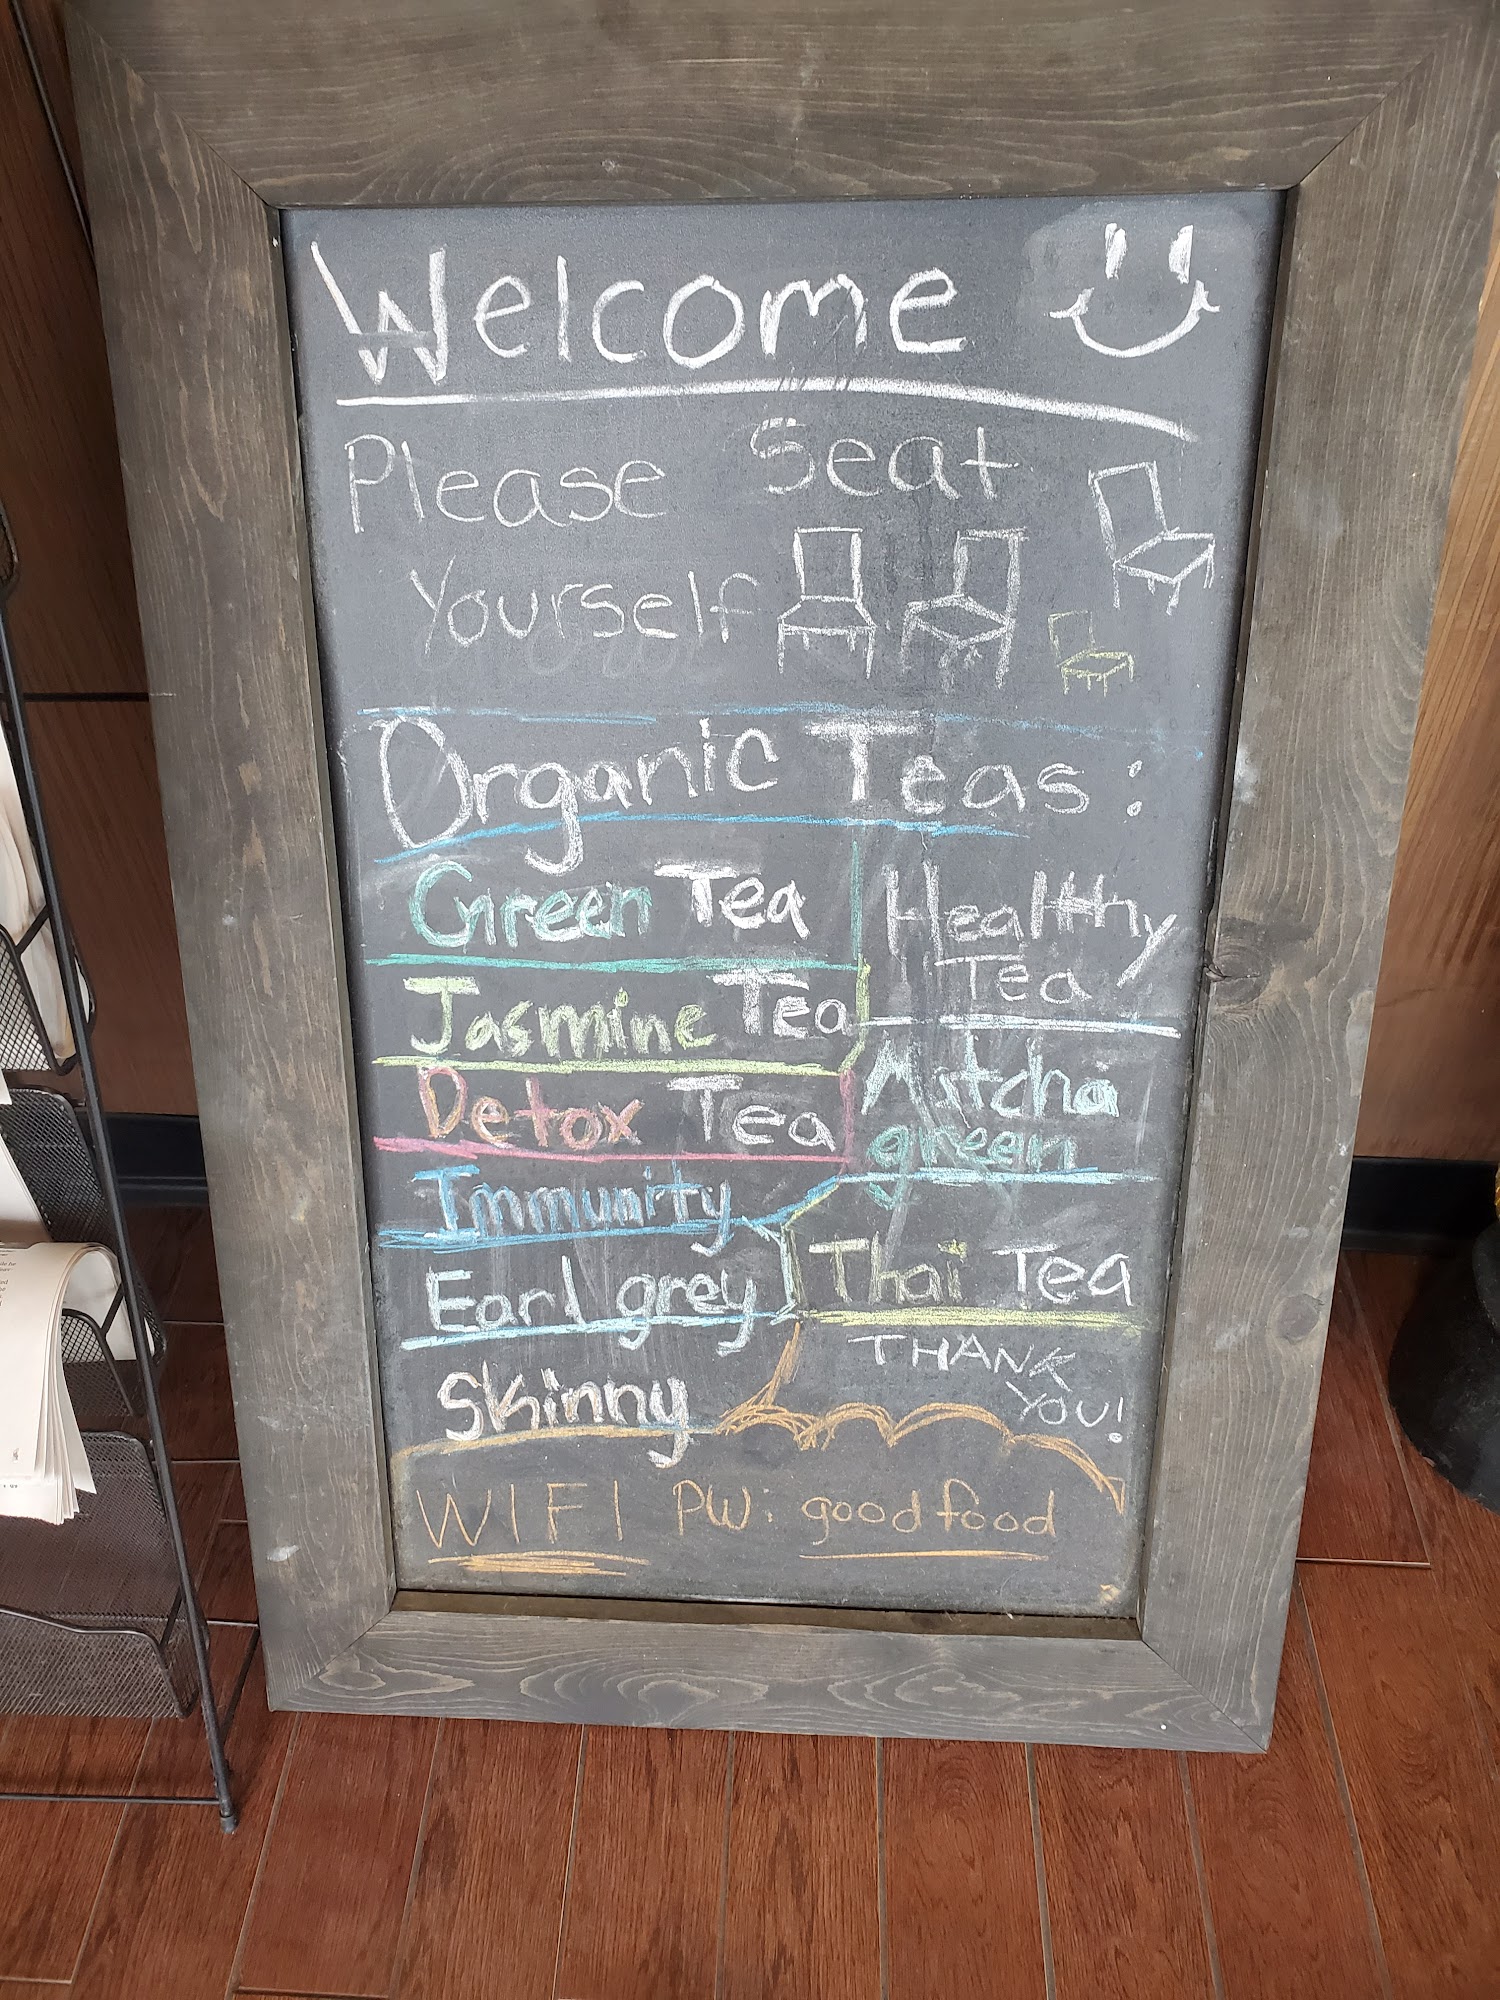 Welcome
Please Seat
Yourself
Organic Teas:
Green Tea
Jasmine Tea
Detox Tea
Immunity
Earl grey
Skinny
Healthy
Tea
Matcha
green
Thai Tea
THANK
YOU!
WIFI PW: goodfood